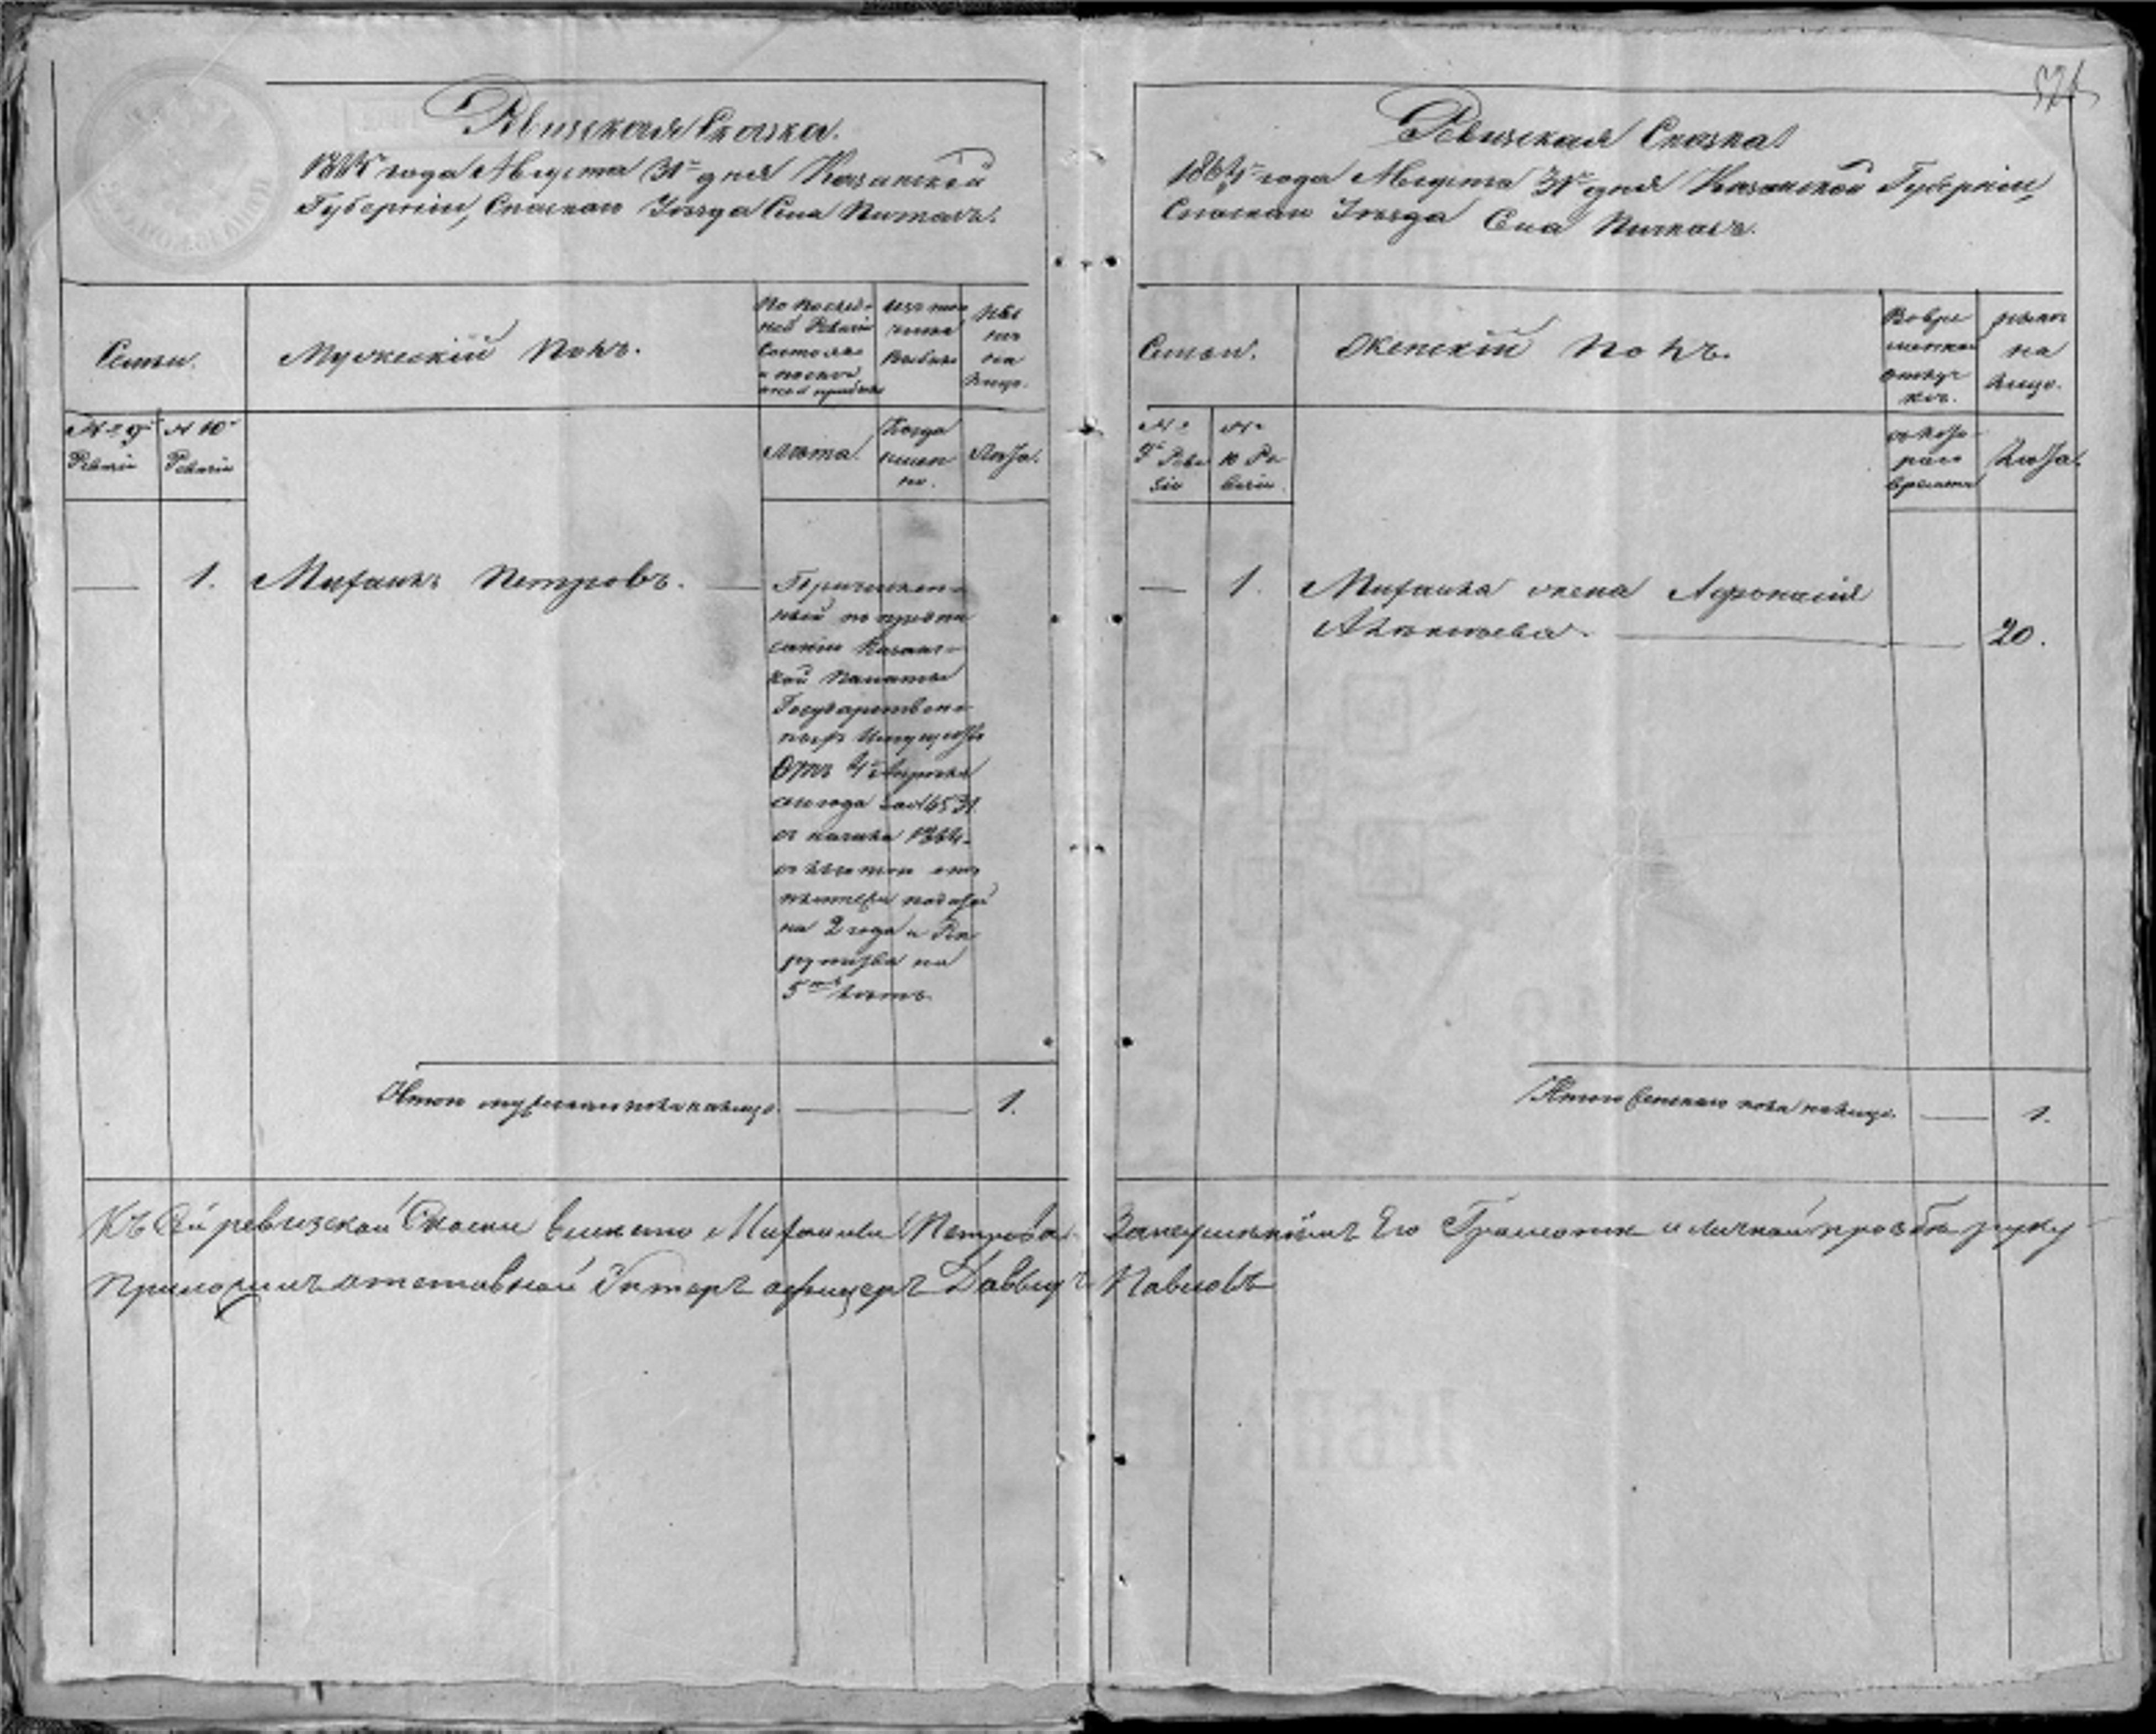 Ревизская Сказка.
1864 года Августа 31го дня Казанской
Губернии, Спаскаго Уезда Села Полянъ.
Семьи.
Мужескій полъ.
По послед-
ней Ревизіи
состояло
и после
Изъ того
числа
выбыло
Ныне
на
лицо.
№ 9й Ревизіи
№ 10й Ревизіи
Лѣта.
Когда
именно.
Лѣта.
1. Михаилъ Петровъ.
Причислен-
ный по предпи-
санію Казанс-
кой Палаты
Государствен-
ныхъ Имуществъ
Отъ 4 Апреля
сего года за № 6531.
съ начала 1864
съ льготою отъ
платежа податей
на 2 года и Ре-
крутства на
5ть лѣтъ.
Итого мужескаго пола на лицо. 1.
Ревизская Сказка
1864 года Августа 31го дня Казанской Губерніи,
Спаскаго Уезда Села
Семьи.
Женскій полъ.
Во вре-
менной
отлуч-
кѣ.
Ныне
на
лицо.
№ 9й Реви-
зіи
№ 10 Ре-
визіи
съ кото-
раго
времени
Лѣта.
1. Михаила жена Афонасія
20.
Итого женскаго пола на лицо. 1.
Къ сей ревизской Скаски вместо Михаила Петрова За неуменіемъ Его Грамоте и личной прозбе руку
Приложилъ отставной Унтеръ офицеръ Давыдъ Павловъ